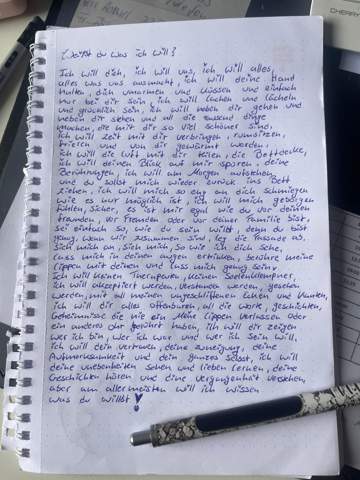 Weißt du was ich will?
Ich will dich, ich will uns, ich will alles,
alles was uns ausmacht, ich will deine Hand
halten dich umarmen und küssen und einfach
nur bei dir sein, ich will lachen und lächeln
und glücklich sein, ich will neben dir gehen und
neben dir stehen und all die tausend dinge
machen, die mit dir so viel schöner sind,
ich will zeit mit dir verbringen, rumsitzen,
frieren und von dir gewärmt werden,
ich will die Luft mit dir teilen, die Bettdecke,
ich will deinen Blick auf mir spüren, deine
Berührungen, ich will am Morgen aufstehen
und du sollst mich wieder zurück ins Bett
ziehen, ich will mich so eng an dich schmiegen
wie es nur möglich ist, ich will geborgen
fühlen, sicher, es ist mir egal wie du vor deinen
freunden, vor Fremden oder vor deiner Familie bist,
sei einfach so, wie du sein willst, denn du bist
genug, wenn wir zusammen sind, leg die Fassade ab.
Sieh mich an, sieh mich, so wie ich dich sehe,
lass mich in deinen augen ertrinken, berühre meine
Lippen mit deinen und lass mich genug sein,
ich will keinen Therapeuten, keinen Seelenklempner,
ich will akzeptiert werden, verstanden werden, gesehen
werden, mit all meinen ungeschliffenen Ecken und Kanten,
ich will dir alles offenbaren, all die Worte, geschichten,
Geheimnisse die nie ein Mal meine Lippen verlassen oder
ein anderes ohr berührt haben, ich will dir zeigen
wer ich bin, wer ich war und wer ich sein will,
ich will dein vertrauen, deine zuneigung, deine
Aufmerksamkeit und dein ganzes selbst, ich will
deine unebenheiten sehen und lieben lernen, deine
Geschichten hören und deine vergangenheit verstehen,
aber am allermeisten will ich wissen
was du willst
CHERRY